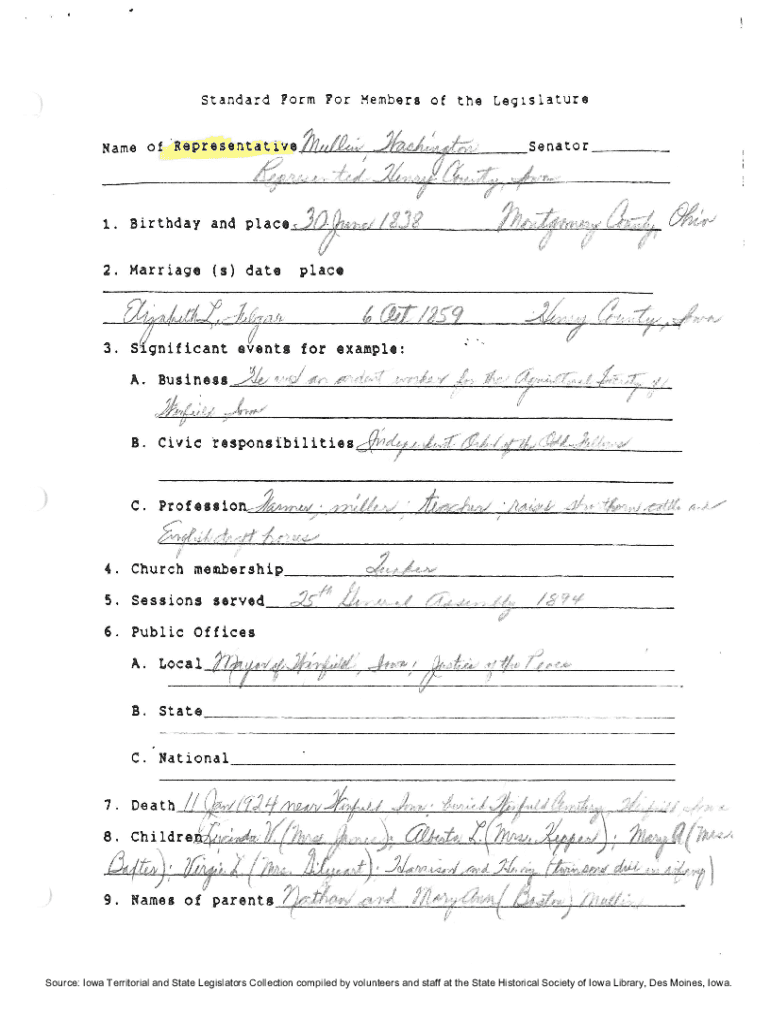 Standard Form For Members of the Legislature
Name of Representative Mullin, Washington Senator
Represented Henry County, Iowa
1. Birthday and place 30 June 1838 Montgomery County, Ohio
2. Marriage (s) date place
Elizabeth L. 6 Oct 1859 Henry County, Iowa
3. Significant events for example:
A. Business He was an ardent worker for the Agricultural Society of
Winfield, Iowa
B. Civic responsibilities Independent Order of the Odd Fellows
C. Profession Farmer; miller; teacher; raises shorthorn cattle and
English draft horses
4. Church membership Quaker
5. Sessions served 25th General Assembly 1894
6. Public Offices
A. Local Mayor of Winfield, Iowa; Justice of the Peace
B. State
C. National
7. Death 11 Jan 1924 near Winfield Iowa. buried Winfield Cemetery, Winfield Iowa
8. Children V. (Mrs. ); Alberta L. (Mrs. ); Mary A (Mrs.
); Virgie L (Mrs. ); Harrison and (twin sons died in infancy)
9. Names of parents Nathan and Mary Ann (Boston) Mullin
Source: Iowa Territorial and State Legislators Collection compiled by volunteers and staff at the State Historical Society of Iowa Library, Des Moines, Iowa.